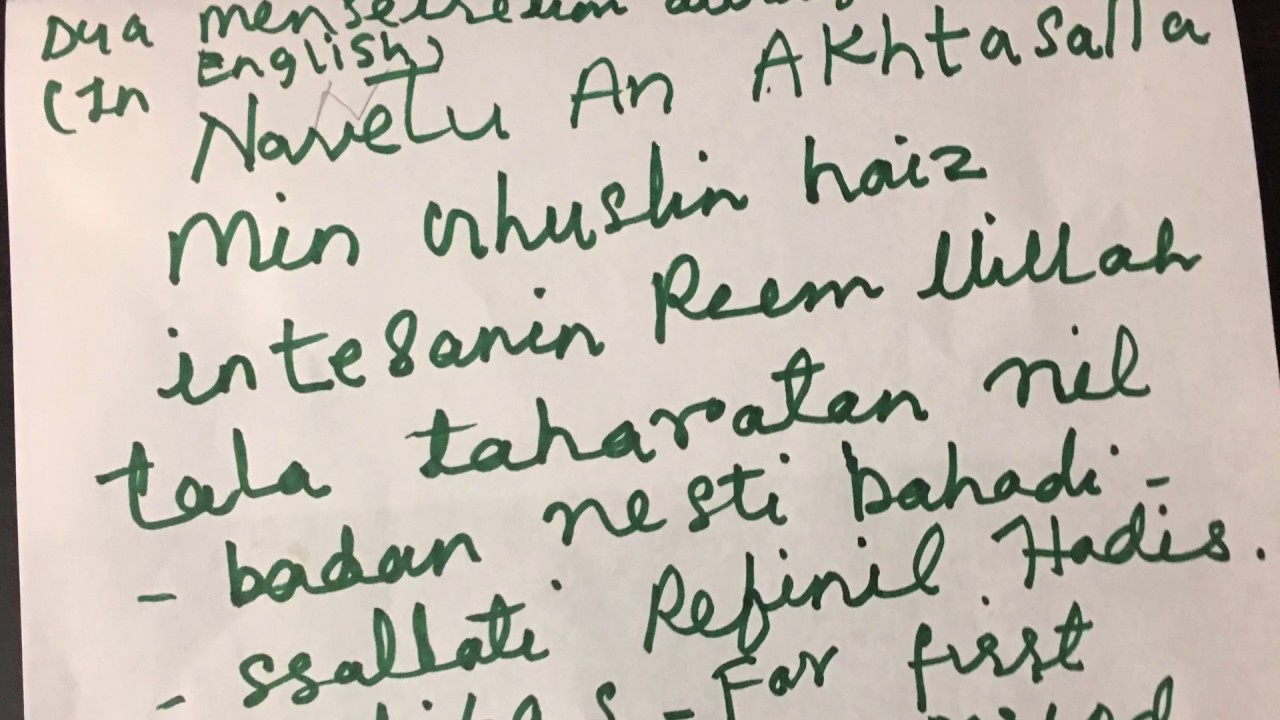 Dua
(In English)
Navetu An Akhtasalla
Min ghuslin haiz
intesanin Reem llillah
tala taharatan nil
- badan nesti bahadi -
- ssallati Refinil Hadis.
- For first